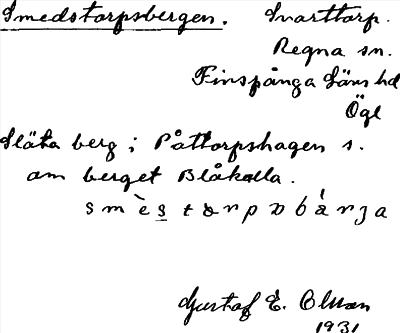 Smedstorpsbergen. Svarttorp.
Regna sn.
Finspånga läns hd
Ögl
Släta berg i Påttorpshagen s.
om berget Blåkalla.
smès̲torpɒbárʒa
Gustaf E. Olsson
1931